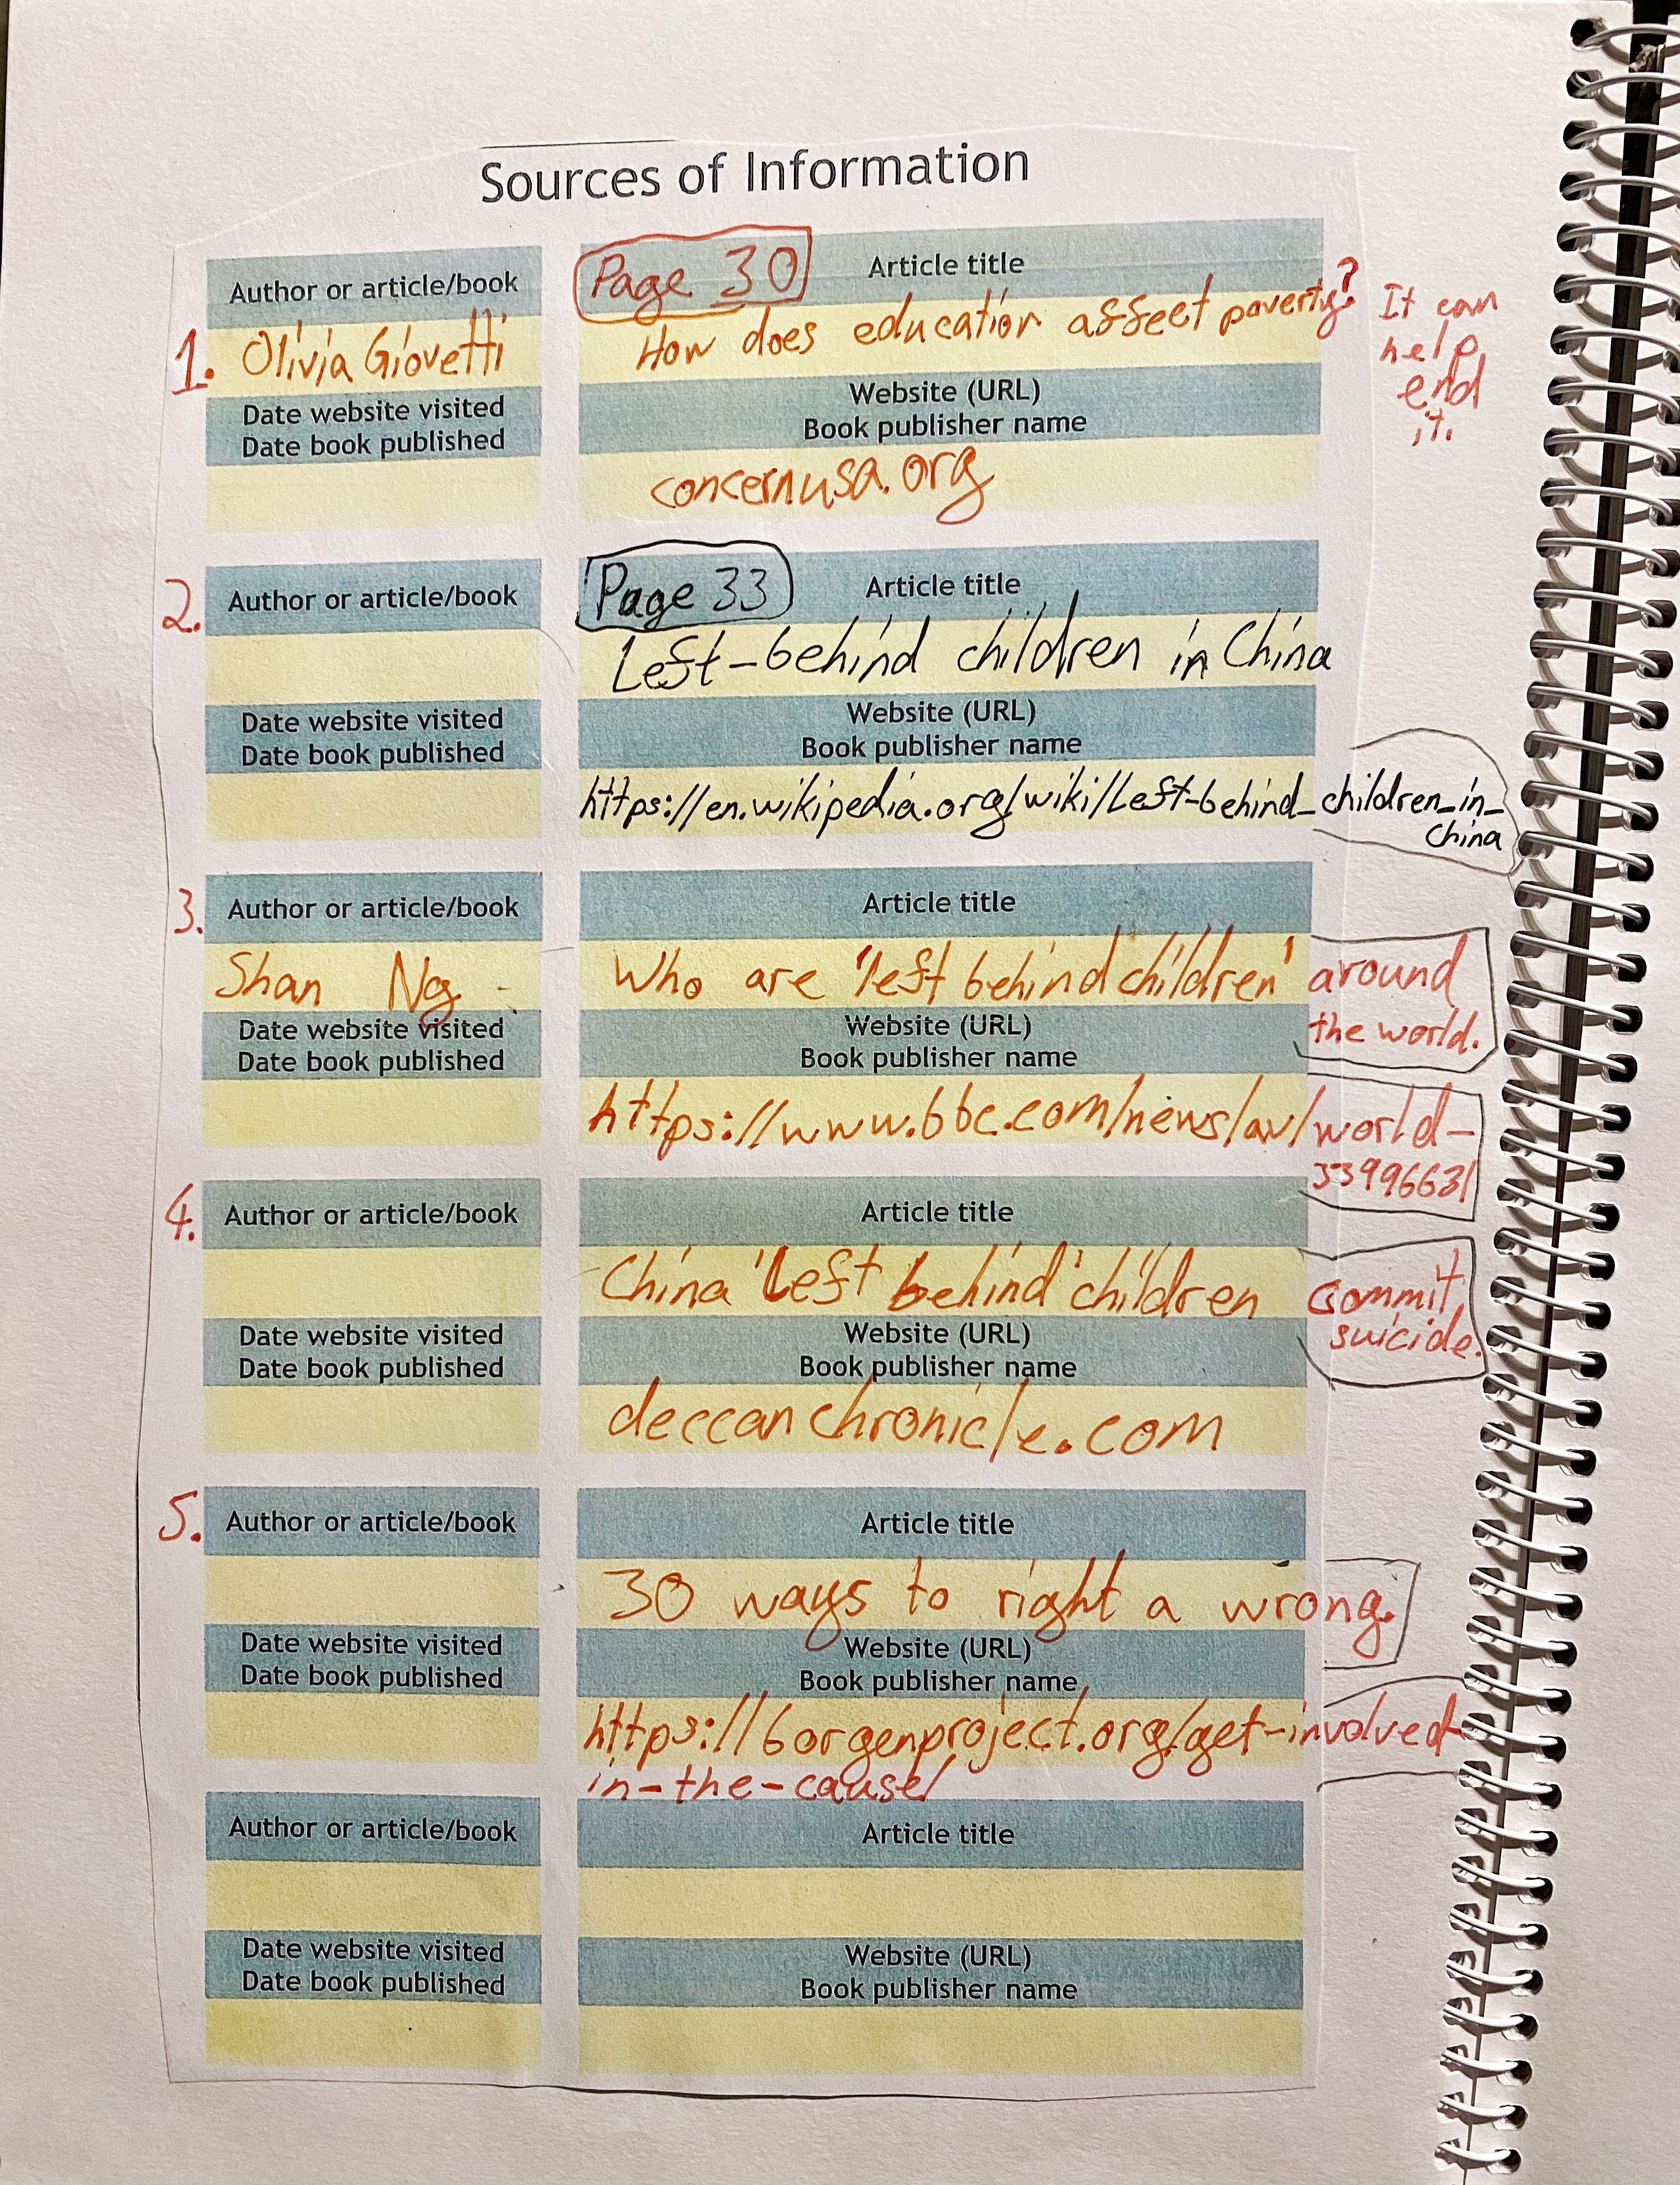 Sources of Information
Author or article/book
Page 30
Article title
1. Olivia Giovetti
How does education affect poverty?
It can
help
end
it.
Date website visited
Date book published
Website (URL)
Book publisher name
concernusa.org
2. Author or article/book
Page 33
Article title
Left-behind children in China
Date website visited
Date book published
Website (URL)
Book publisher name
https://en.wikipedia.org/wiki/Left-behind_children_in_
China
3. Author or article/book
Article title
Shan Ng
Who are 'left behind children' around
the world.
Date website visited
Date book published
Website (URL)
Book publisher name
https://www.bbc.com/news/av/world-
33996631
4. Author or article/book
Article title
China 'Left behind' children commit
suicide.
Date website visited
Date book published
Website (URL)
Book publisher name
deccanchronicle.com
5. Author or article/book
Article title
30 ways to right a wrong.
Date website visited
Date book published
Website (URL)
Book publisher name
https://borgenproject.org/get-involved-
in-the-cause/
Author or article/book
Article title
Date website visited
Date book published
Website (URL)
Book publisher name